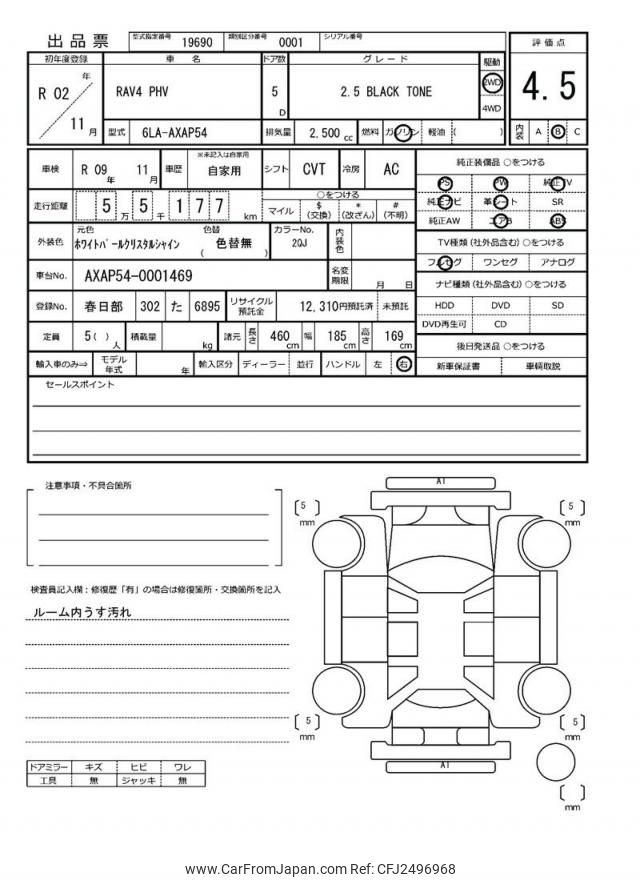 出品票
型式指定番号 19690 類別区分番号 0001 シリアル番号
初年度登録 車名 ドア数 グレード 駆動 評価点
R 02 年 11 月
RAV4 PHV 5 D 2.5 BLACK TONE 2WD 4WD
4.5
型式 6LA-AXAP54 排気量 2,500 cc 燃料 ガソリン 軽油 ( )
内装 A B C
車検 R 09 年 11 月 車歴 ※未記入は自家用 自家用 シフト CVT 冷房 AC
純正装備品 ○をつける
PS PW 純正TV
純正ナビ 革シート SR
純正AW エアB ABS
走行距離 5 万 5 千 1 7 7 km
○をつける
マイル $ (交換) * (改ざん) # (不明)
外装色 元色 ホワイトパールクリスタルシャイン 色替 ( 色替無 ) カラーNo. 2QJ 内装色
TV種類 (社外品含む) ○をつける
フルセグ ワンセグ アナログ
車台No. AXAP54-0001469 名変期限 月 日
ナビ種類 (社外品含む) ○をつける
HDD DVD SD
DVD再生可 CD
登録No. 春日部 302 た 6895 リサイクル預託金 12,310 円預託済 未預託
定員 5 ( ) 人 積載量 kg 諸元 長さ 460 cm 幅 185 cm 高さ 169 cm
後日発送品 ○をつける
新車保証書 車輌取説
輸入車のみ⇒ モデル年式 年 輸入区分 ディーラー 並行 ハンドル 左 右
セールスポイント
注意事項・不具合箇所
検査員記入欄：修復歴「有」の場合は修復箇所・交換箇所を記入
ルーム内うす汚れ
A1
5 mm
5 mm
5 mm
5 mm
A1
mm
ドアミラー キズ ヒビ ワレ
工具 無 ジャッキ 無
www.CarFromJapan.com Ref: CFJ2496968